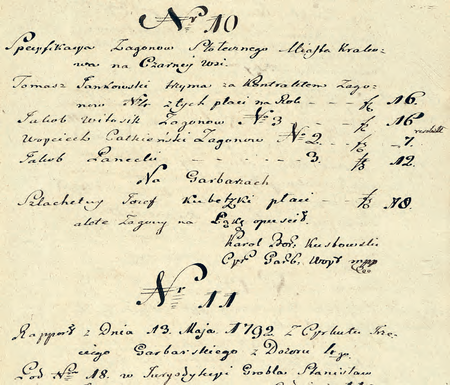 Nr 10
Specyfikacya Zagonow Stołecznego Miasta Krako-
wa na Czarnej Wsi.
Tomasz Jankowski trzyma za Kontraktem Zago-
now Nr 4. złych płaci na Rok - - - f 16.
Jakob Witosik Zagonow Nr 3 - - f 16
Woyciech Całkiński Zagonow Nr 2. - - f 7.
Jakob Pancelo - - - 3. f 12.
Na Garbarzach
Szlachetny Józef Kubetzki płaci - - f 18.
ale te Zagony na Łąkę opuścił.
Karol Boż. Kusbowski
Cyr. Garb. Woyt mpp
Nr 11
Rapport z Dnia 13. Maja 1792 z Cyrkułu Trze-
ciego Garbarskiego z Dozoru 1go
Pod Nro 18. w Jurysdykcyi Grobla Stanisław